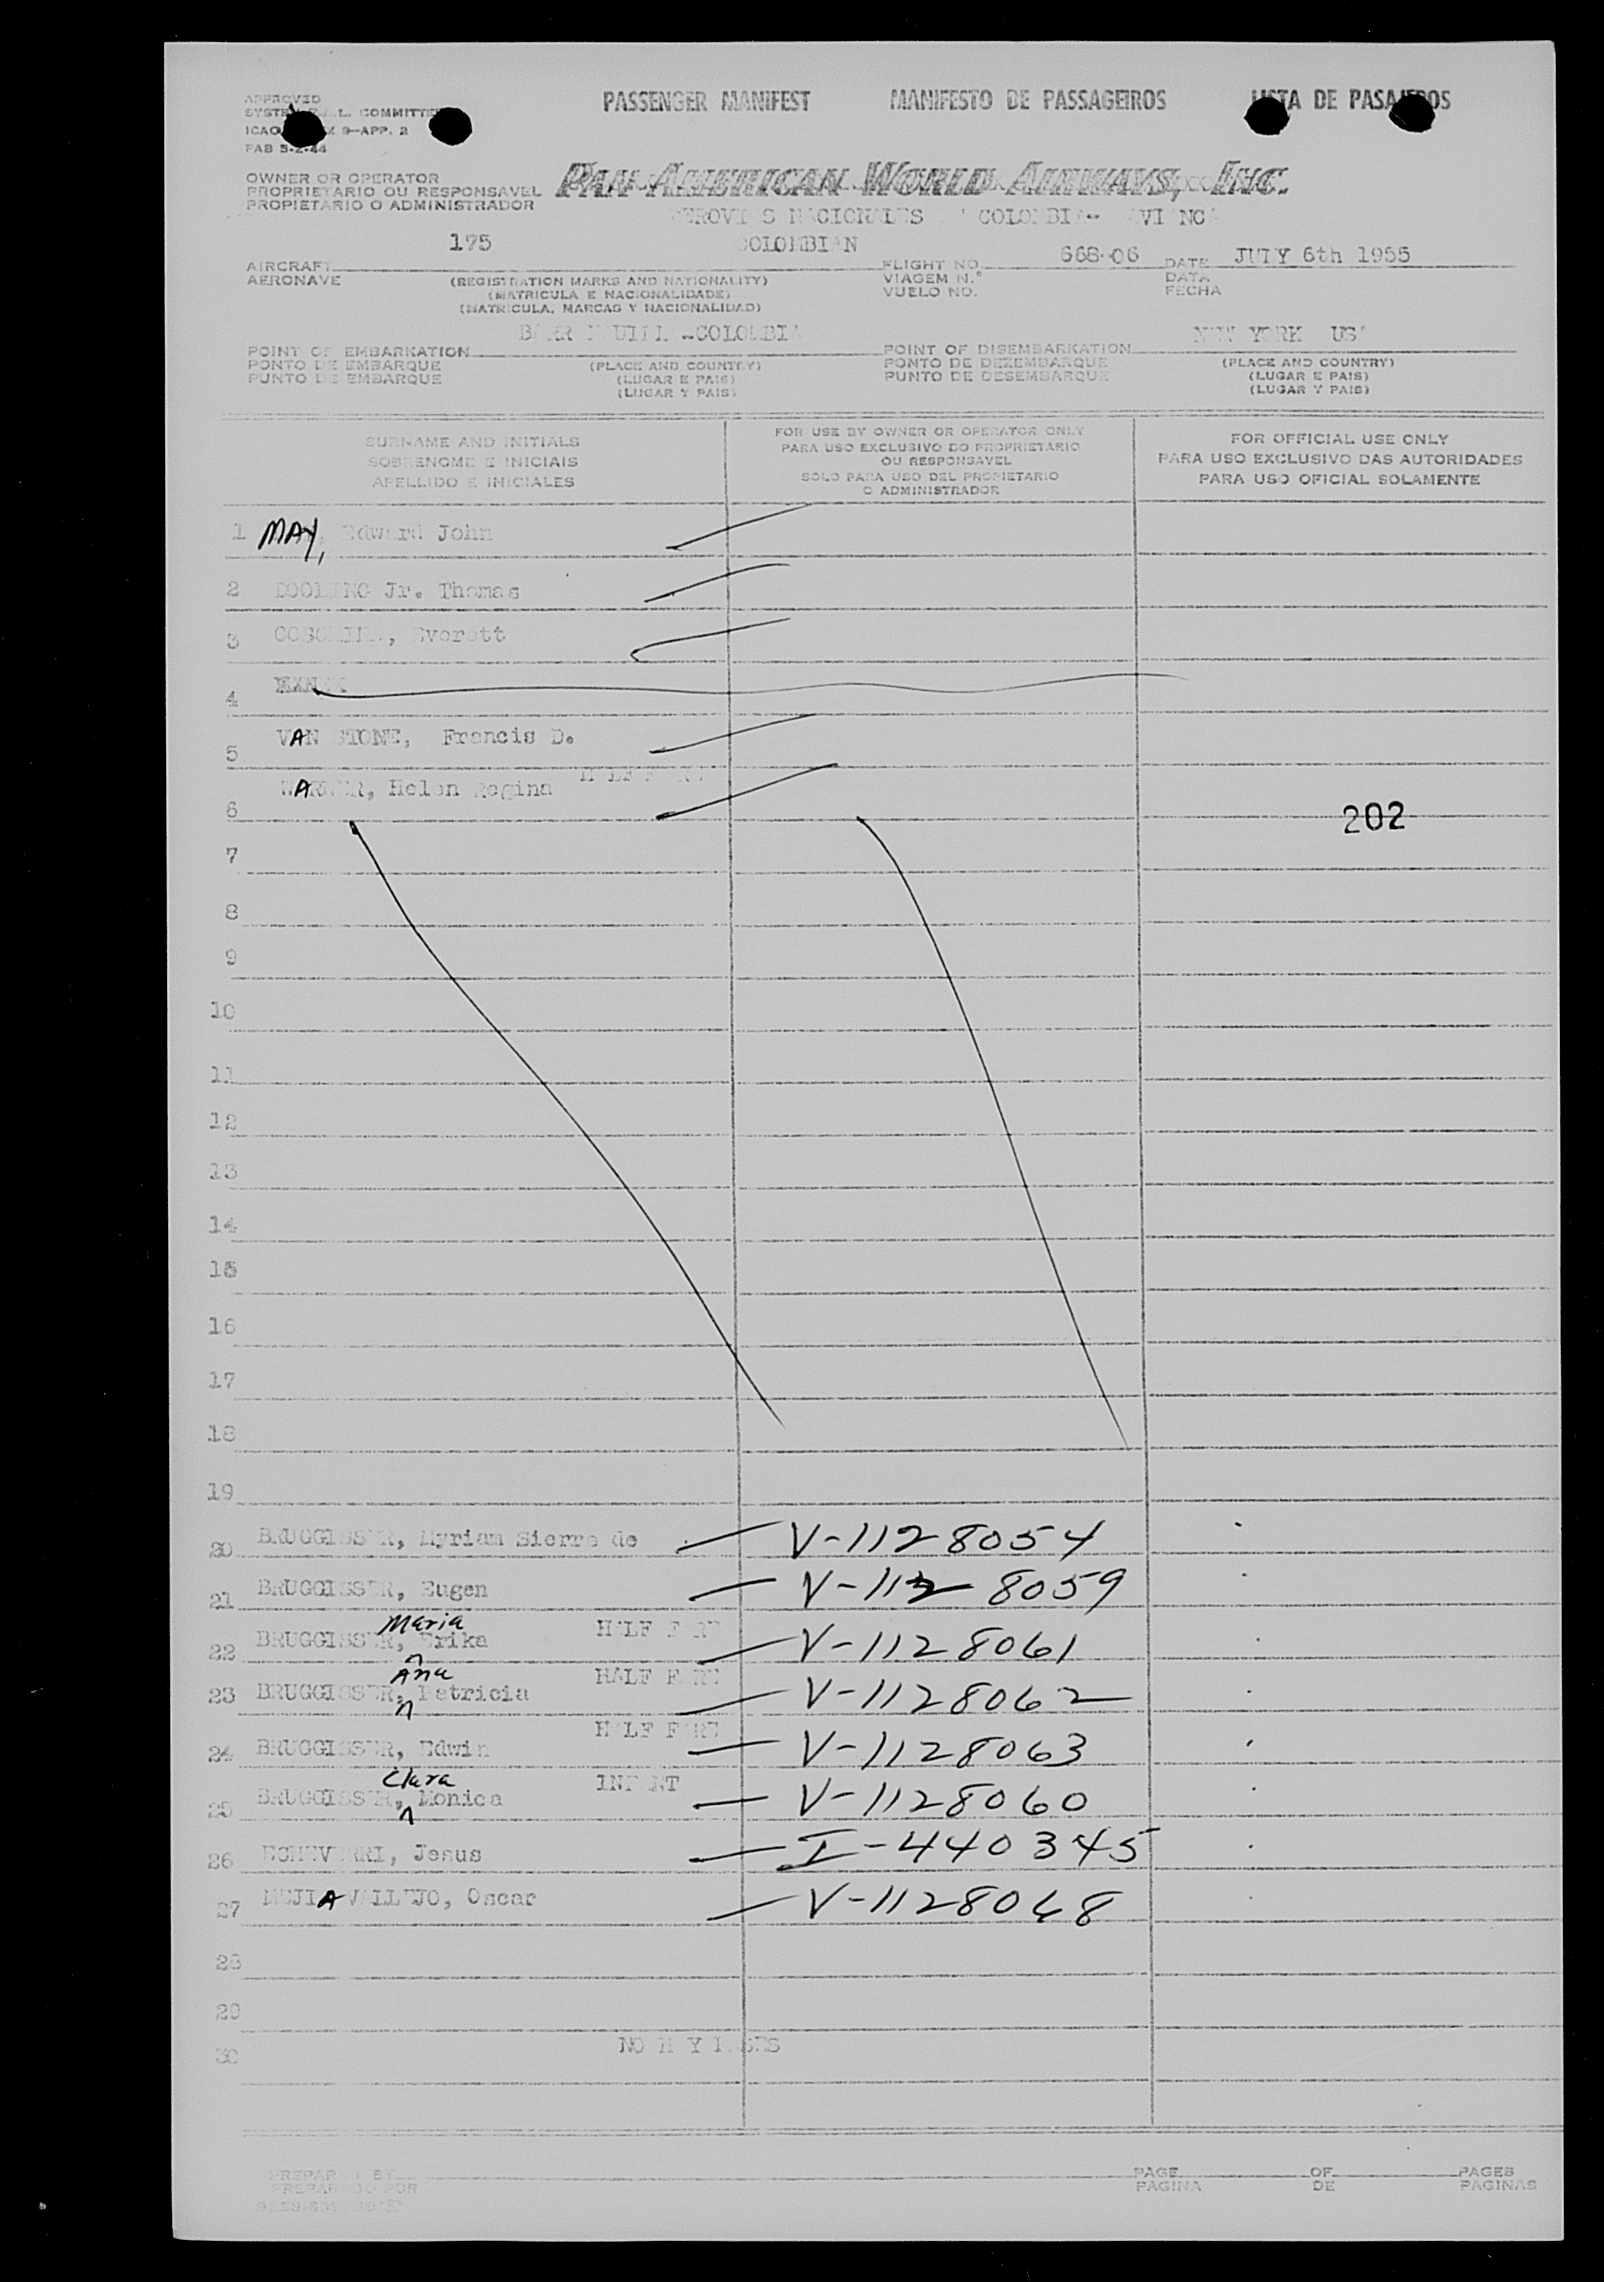 APPROVED PASSENGER MANIFEST MANIFESTO DE PASSAGEIROS LISTA DE PASAJEROS
COMMITTEE
ICAO 9-APP. 2
FAB 5-2-44
OWNER OR OPERATOR
PROPRIETARIO OU RESPONSAVEL
PROPIETARIO O ADMINISTRADOR
PAN AMERICAN WORLD AIRWAYS, INC.
NACIONALES COLOMBIA
175 COLOMBIAN 668-06 JULY 6th 1955
AIRCRAFT FLIGHT NO. DATE
AERONAVE (REGISTRATION MARKS AND NATIONALITY) VIAGEM N.º DATA
(MATRICULA E NACIONALIDADE) VUELO NO. FECHA
(MATRICULA, MARCAS Y NACIONALIDAD)
-COLOMBIA NEW YORK USA
POINT OF EMBARKATION POINT OF DISEMBARKATION
PONTO DE EMBARQUE (PLACE AND COUNTRY) PONTO DE DEZEMBARQUE (PLACE AND COUNTRY)
PUNTO DE EMBARQUE (LUGAR E PAIS) PUNTO DE DESEMBARQUE (LUGAR E PAIS)
(LUGAR Y PAIS) (LUGAR Y PAIS)
SURNAME AND INITIALS
SOBRENOME E INICIAIS
APELLIDO E INICIALES
FOR USE BY OWNER OR OPERATOR ONLY
PARA USO EXCLUSIVO DO PROPRIETARIO
OU RESPONSAVEL
SOLO PARA USO DEL PROPIETARIO
O ADMINISTRADOR
FOR OFFICIAL USE ONLY
PARA USO EXCLUSIVO DAS AUTORIDADES
PARA USO OFICIAL SOLAMENTE
1 MAY, Edward John
2 Jr. Thomas
3 Everett
4
5 VAN Francis D.
HALF FARE
6 Helen Regina
202
7
8
9
10
11
12
13
14
15
16
17
18
19
20 BRUGGISSER, Myriam Sierra de V-1128054
21 BRUGGISSER, Eugen V-1128059
Maria
22 BRUGGISSER, Erika HALF FARE V-1128061
Ana
23 BRUGGISSER, Patricia HALF FARE V-1128062
24 BRUGGISSER, Edwin HALF FARE V-1128063
Clara
25 BRUGGISSER, Monica INFANT V-1128060
26 ECHEVERRI, Jesus I-440345
27 MEJIA VALLEJO, Oscar V-1128048
28
29
30
PREPARED BY PAGE OF PAGES
POR PAGINA DE PAGINAS